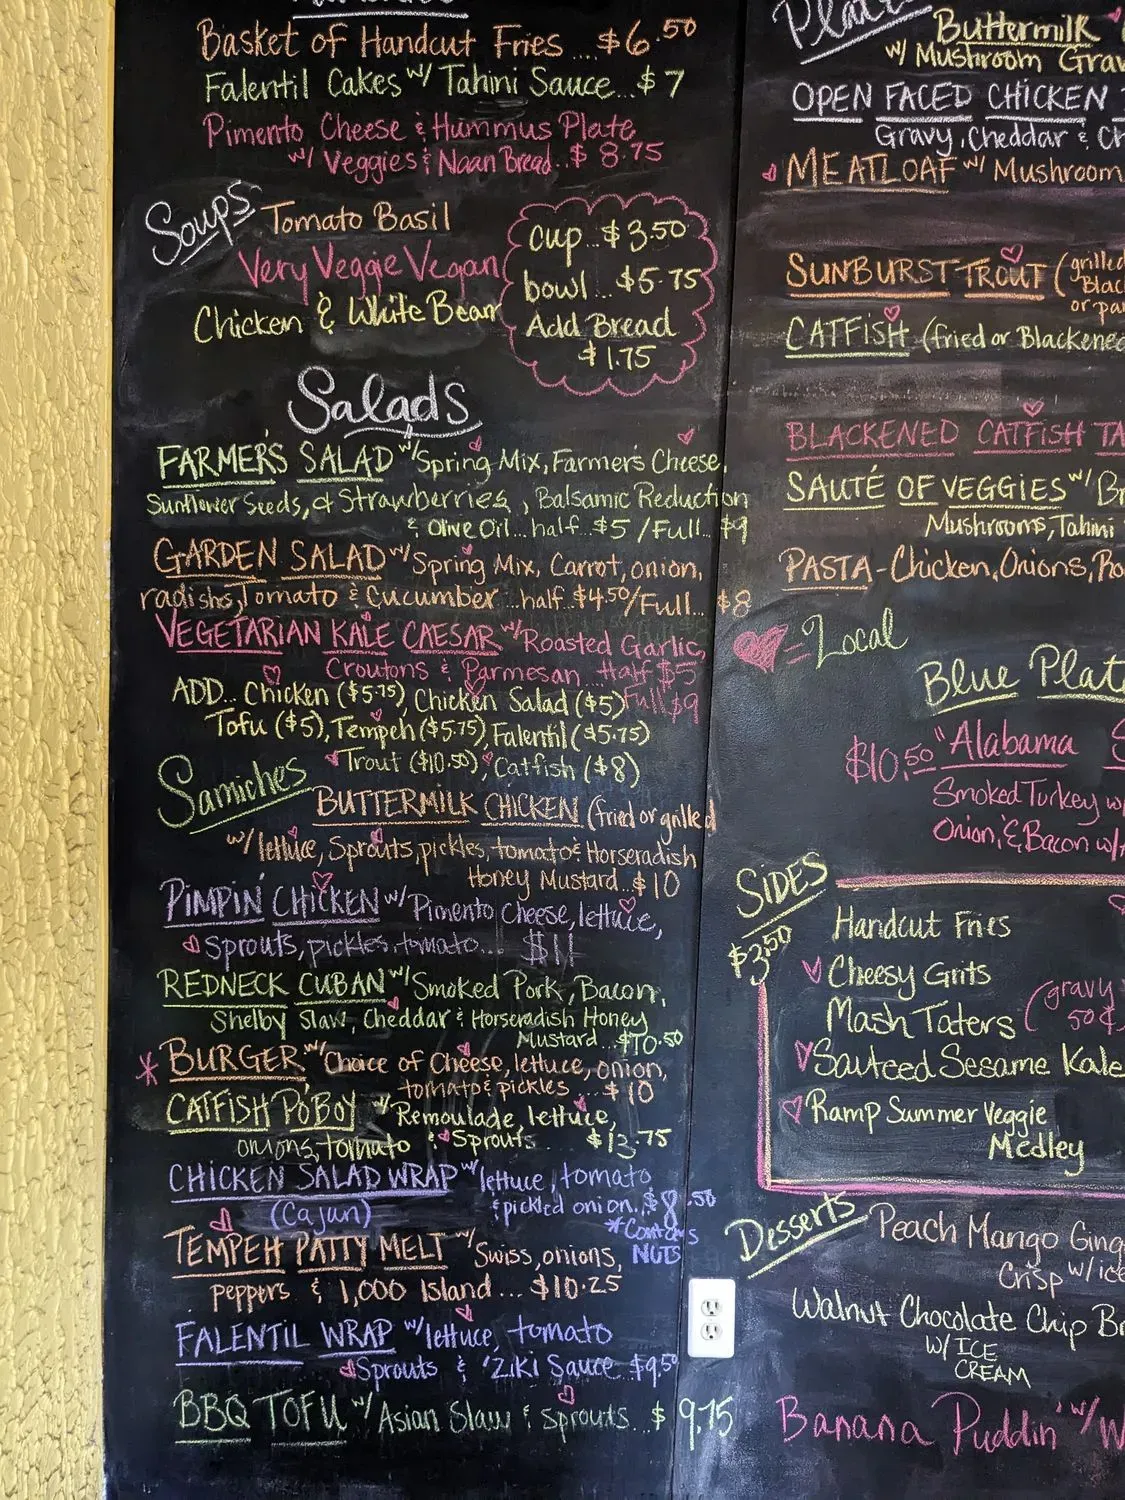 Basket of Handcut Fries... $6.50
Falentil Cakes w/ Tahini Sauce... $7
Pimento Cheese & Hummus Plate
w/ Veggies & Naan Bread.. $8.75
Soups
Tomato Basil
Very Veggie Vegan
Chicken & White Bean
cup... $3.50
bowl... $5.75
Add Bread
$1.75
Salads
FARMER'S SALAD w/ Spring Mix, Farmer's Cheese,
Sunflower Seeds, & Strawberries, Balsamic Reduction
& Olive Oil... half.. $5 / Full... $9
GARDEN SALAD w/ Spring Mix, Carrot, onion,
radishs, Tomato & Cucumber ...half.. $4.50/Full... $8
VEGETARIAN KALE CAESAR w/ Roasted Garlic,
Croutons & Parmesan... Half $5
Full $9
ADD.. Chicken ($5.75), Chicken Salad ($5)
Tofu ($5), Tempeh ($5.75), Falentil ($5.75)
Trout ($10.50), Catfish ($8)
Samiches
BUTTERMILK CHICKEN (fried or grilled
w/ lettuce, Sprouts, pickles, tomato & Horseradish
Honey Mustard.. $10
PIMPIN' CHICKEN w/ Pimento Cheese, lettuce,
Sprouts, pickles, tomato... $11
REDNECK CUBAN w/ Smoked Pork, Bacon,
Shelby Slaw, Cheddar & Horseradish Honey
Mustard... $10.50
* BURGER w/ Choice of Cheese, lettuce, onion,
tomato & pickles... $10
CATFISH PO'BOY w/ Remoulade, lettuce,
onions, tomato & Sprouts $13.75
CHICKEN SALAD WRAP w/ lettuce, tomato
(Cajun) & pickled onion.. $8.50
*Contains
NUTS
TEMPEH PATTY MELT w/ Swiss, onions,
peppers & 1,000 Island... $10.25
FALENTIL WRAP w/ lettuce, tomato
Sprouts & 'Ziki Sauce.. $9.50
BBQ TOFU w/ Asian Slaw & Sprouts... $9.75
Buttermilk
w/ Mushroom Grav
OPEN FACED CHICKEN
Gravy, Cheddar & Ch
MEATLOAF w/ Mushroom
SUNBURST TROUT (grilled
Black
or pa
CATFISH (fried or Blackened
BLACKENED CATFISH TA
SAUTÉ OF VEGGIES w/ Br
Mushrooms, Tahini
PASTA - Chicken, Onions, Ro
= Local
Blue Plat
$10.50 "Alabama
Smoked Turkey w/
Onion, & Bacon w/
SIDES
$3.50
Handcut Fries
Cheesy Grits
Mash Taters (gravy
50¢
Sauteed Sesame Kale
Ramp Summer Veggie
Medley
Desserts
Peach Mango Ging
Crisp w/ ice
Walnut Chocolate Chip Br
w/ ICE
CREAM
Banana Puddin' w/ W